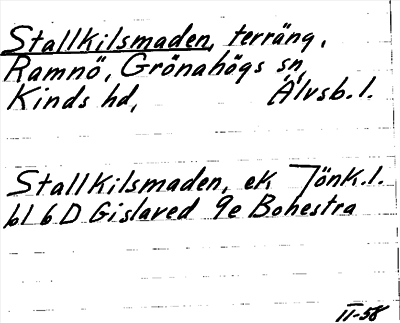 Stallkilsmaden, terräng,
Ramnö, Grönahögs sn,
Kinds hd, Älvsb.l.
Stallkilsmaden, ek Jönk.l.
bl 6 D Gislaved 9e Bohestra
II-58